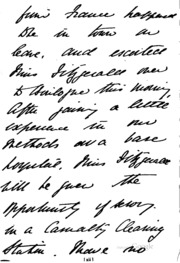 from France happened
to be in town on
leave, and escorted
Miss Fitzgerald over
to Boulogne this morning.
After gaining a little
experience in our
methods at a base
hospital, Miss Fitzgerald
will be given the
opportunity of serving
in a Casualty Clearing
Station. There are no